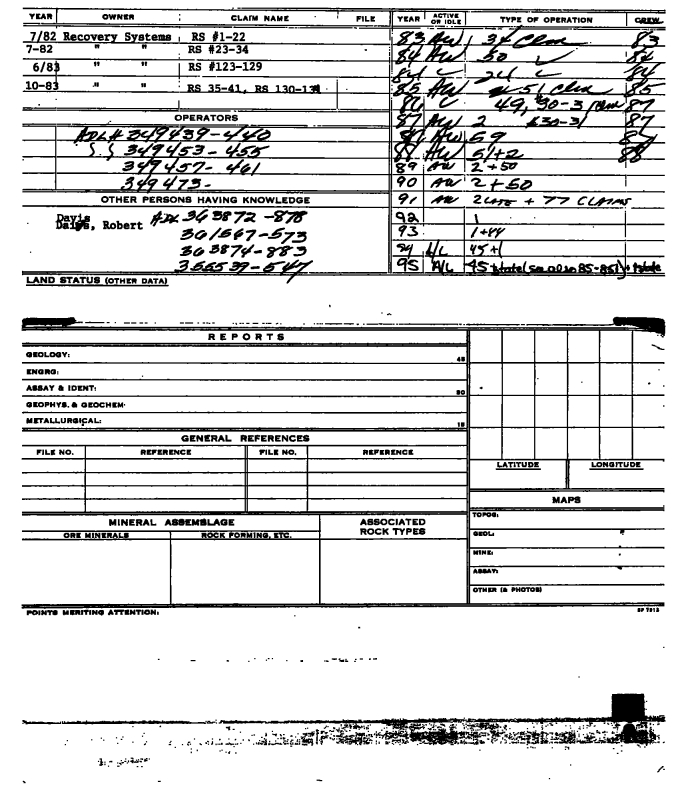 YEAR OWNER CLAIM NAME FILE
7/82 Recovery Systems RS #1-22
7-82 " " RS #23-34
6/83 " " RS #123-129
10-83 " " RS 35-41, RS 130-131
OPERATORS
ADL# 349439-440
349453-455
349457-461
349473-
OTHER PERSONS HAVING KNOWLEDGE
Davis
Robert ADL 363872-878
361567-573
363874-883
355539-547
LAND STATUS (OTHER DATA)
YEAR ACTIVE OR IDLE TYPE OF OPERATION CREW
83 AW 34 Clm 83
84 AW 50 84
84 24 84
85 AW 51 Clm 85
86 49, 30-3 87
87 AW 2 87
AW 59
88 AW 51+2 88
89 AW 2+50
90 AW 2+50
91 AW 2 LATE + 77 CLAIMS
92 1
93 1+44
94 45+1
95 A/L 45 state (see also 85-851)
REPORTS
GEOLOGY:
ENGRG:
ASSAY & IDENT:
GEOPHYS. & GEOCHEM:
METALLURGICAL:
45
30
15
GENERAL REFERENCES
FILE NO. REFERENCE FILE NO. REFERENCE
LATITUDE LONGITUDE
MINERAL ASSEMBLAGE
ORE MINERALS ROCK FORMING, ETC.
ASSOCIATED
ROCK TYPES
MAPS
TOPOG:
GEOL:
MINE:
ASSAY:
OTHER (& PHOTOS)
POINTS MERITING ATTENTION:
SP 7913